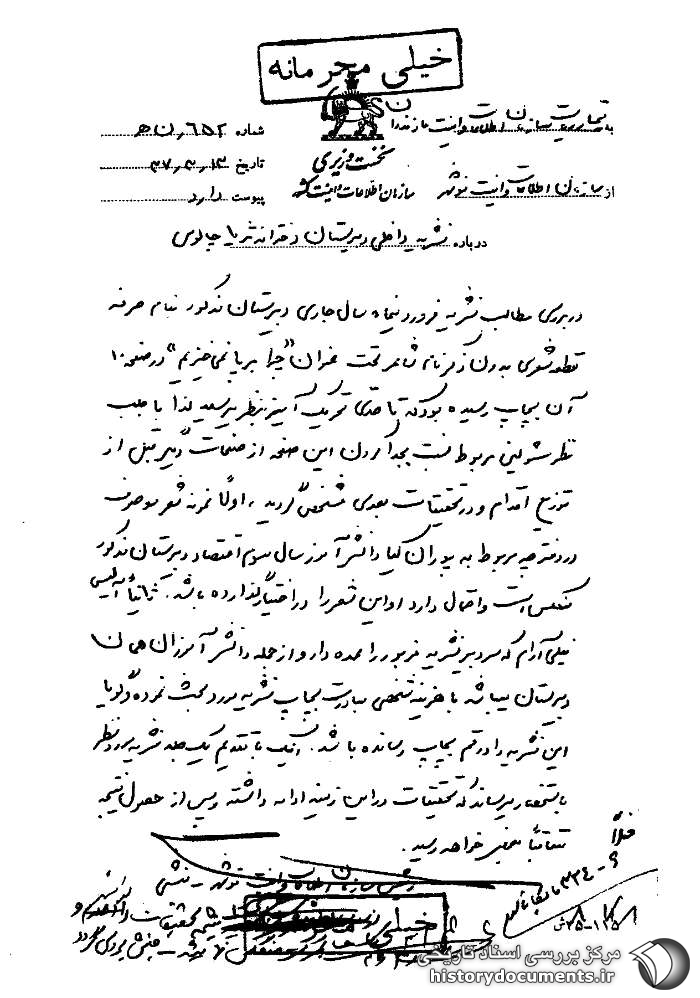 خیلی محرمانه
به ریاست سازمان اطلاعات و امنیت مازندران
شماره ۶۵۲
نخست وزیری
تاریخ ۳۷٫۳٫۱۳
از سازمان اطلاعات و امنیت نوشهر
سازمان اطلاعات و امنیت کشور
پیوست دارد
درباره نشریه داخلی دبیرستان دخترانه ثریا چالوس
در بررسی مطالب نشریه فروردینماه سال جاری دبیرستان مذکور بنام
قطعه شعری بدون ذکر نام شاعر تحت عنوان "چرا بر پا نمی خیزیم" در صفحه ۱۰
آن بچاپ رسیده بود که تا حدی تحریک آمیز بنظر میرسید لذا با جلب
نظر مسئولین مربوط نسبت بجدا کردن این صفحه از صفحات دیگر قبل از
توزیع اقدام و در تحقیقات بعدی مشخص گردید، اولاً نمونه شعر موصوف
در دفترچه مربوط به پوران کیا دانش آموز سال سوم اقتصاد دبیرستان مذکور
منعکس است و احتمال دارد او این شعر را در اختیار گذارده باشد. ثانیاً
آرام که سردبیر نشریه مزبور را عهده دار و از جمله دانش آموزان همان
دبیرستان میباشد با هزینه شخصی مبادرت بچاپ نشریه مورد بحث نموده و گویا
این نشریه را در قم بچاپ رسانده باشد. اینک با تقدیم یک جلد نشریه مورد نظر
باستحضار میرساند که تحقیقات در این زمینه ادامه داشته و پس از حصول نتیجه
متعاقباً بعرض خواهد رسید.
رئیس سازمان اطلاعات و امنیت نوشهر - منشی
خیلی
مرکز بررسی اسناد تاریخی
historydocuments.ir